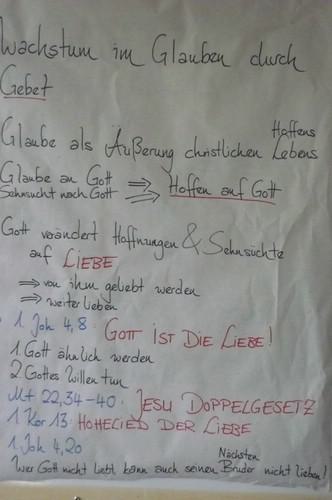 Wachstum im Glauben durch
Gebet
Glaube als Äußerung christlichen Hoffens
Lebens
Glaube an Gott
Sehnsucht nach Gott ⇒ Hoffen auf Gott
Gott verändert Hoffnungen & Sehnsüchte
auf LIEBE
⇒ von ihm geliebt werden
⇒ weiterlieben
1 Joh 4,8: GOTT IST DIE LIEBE!
1 Gott ähnlich werden
2 Gottes Willen tun
Mt 22,34-40: JESU DOPPELGESETZ
1 Kor 13: HOHELIED DER LIEBE
1 Joh 4,20
Nächsten
Wer Gott nicht liebt, kann auch seinen Bruder nicht lieben!